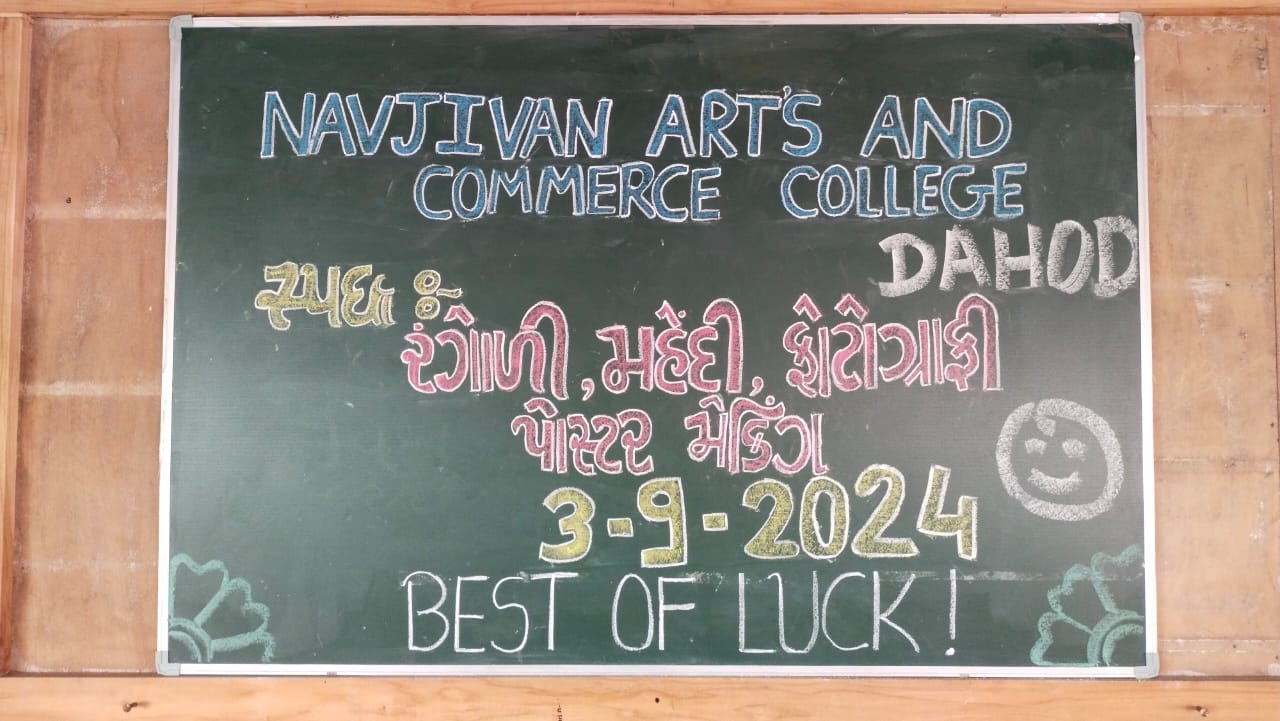 NAVJIVAN ART'S AND
COMMERCE COLLEGE
DAHOD
સ્પર્ધા :-
રંગોળી, મહેંદી, ફોટોગ્રાફી
પોસ્ટર મેકિંગ
3-9-2024
BEST OF LUCK!